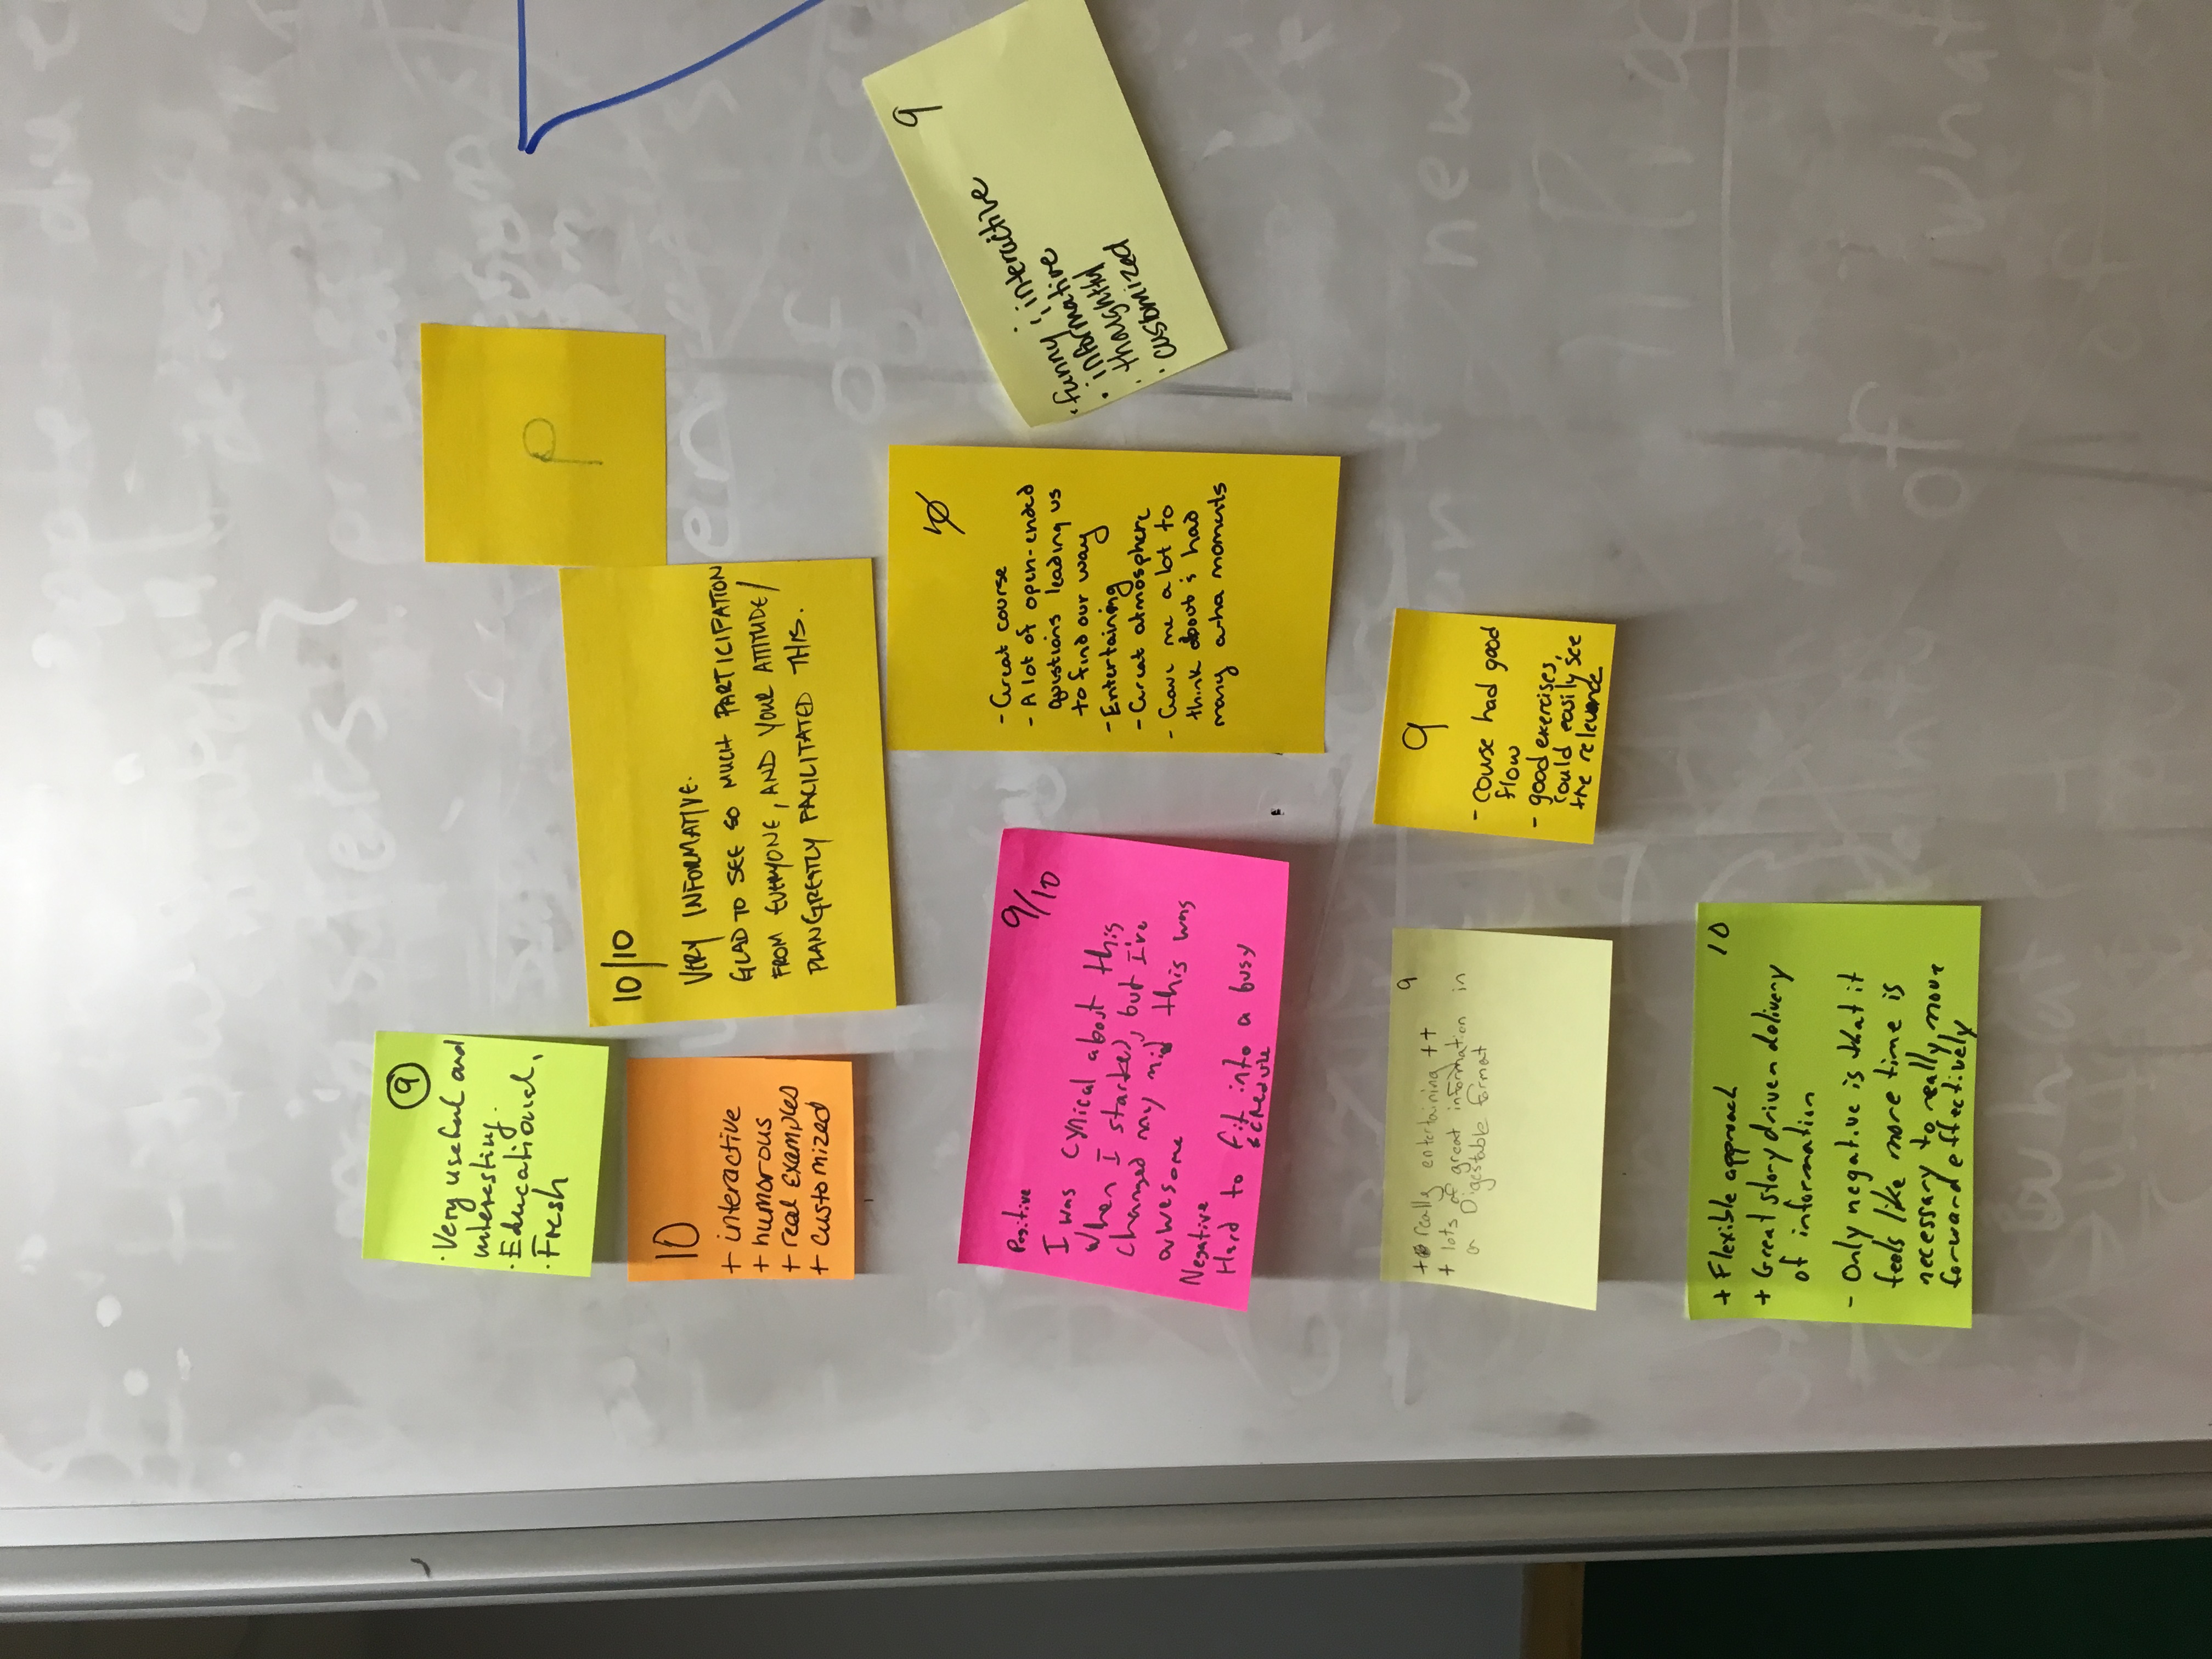 9
· Very useful and
interesting.
· Educational,
· Fresh
10
+ interactive
+ humorous
+ real examples
+ customized
10/10
VERY INFORMATIVE.
GLAD TO SEE SO MUCH PARTICIPATION
FROM EVERYONE, AND YOUR ATTITUDE/
PLAN GREATLY FACILITATED THIS.
P
Positive
9/10
I was cynical about this
when I started, but I've
changed my mid this was
awesome
Negative
Hard to fit into a busy
schedule
10
- Great course
- A lot of open-ended
questions leading us
to find our way
- Entertaining
- Great atmosphere
- Gave me a lot to
think about & had
many a-ha moments
9
· funny & interactive
· informative
· thoughtful
· customized
9
+ really entertaining ++
+ lots of great information in
a Digestable format
9
- course had good
flow
- good exercises,
could easily see
the relevance
10
+ Flexible approach
+ Great story driven delivery
of information
- Only negative is that it
feels like more time is
necessary to really move
forward effectively
new
of what
what